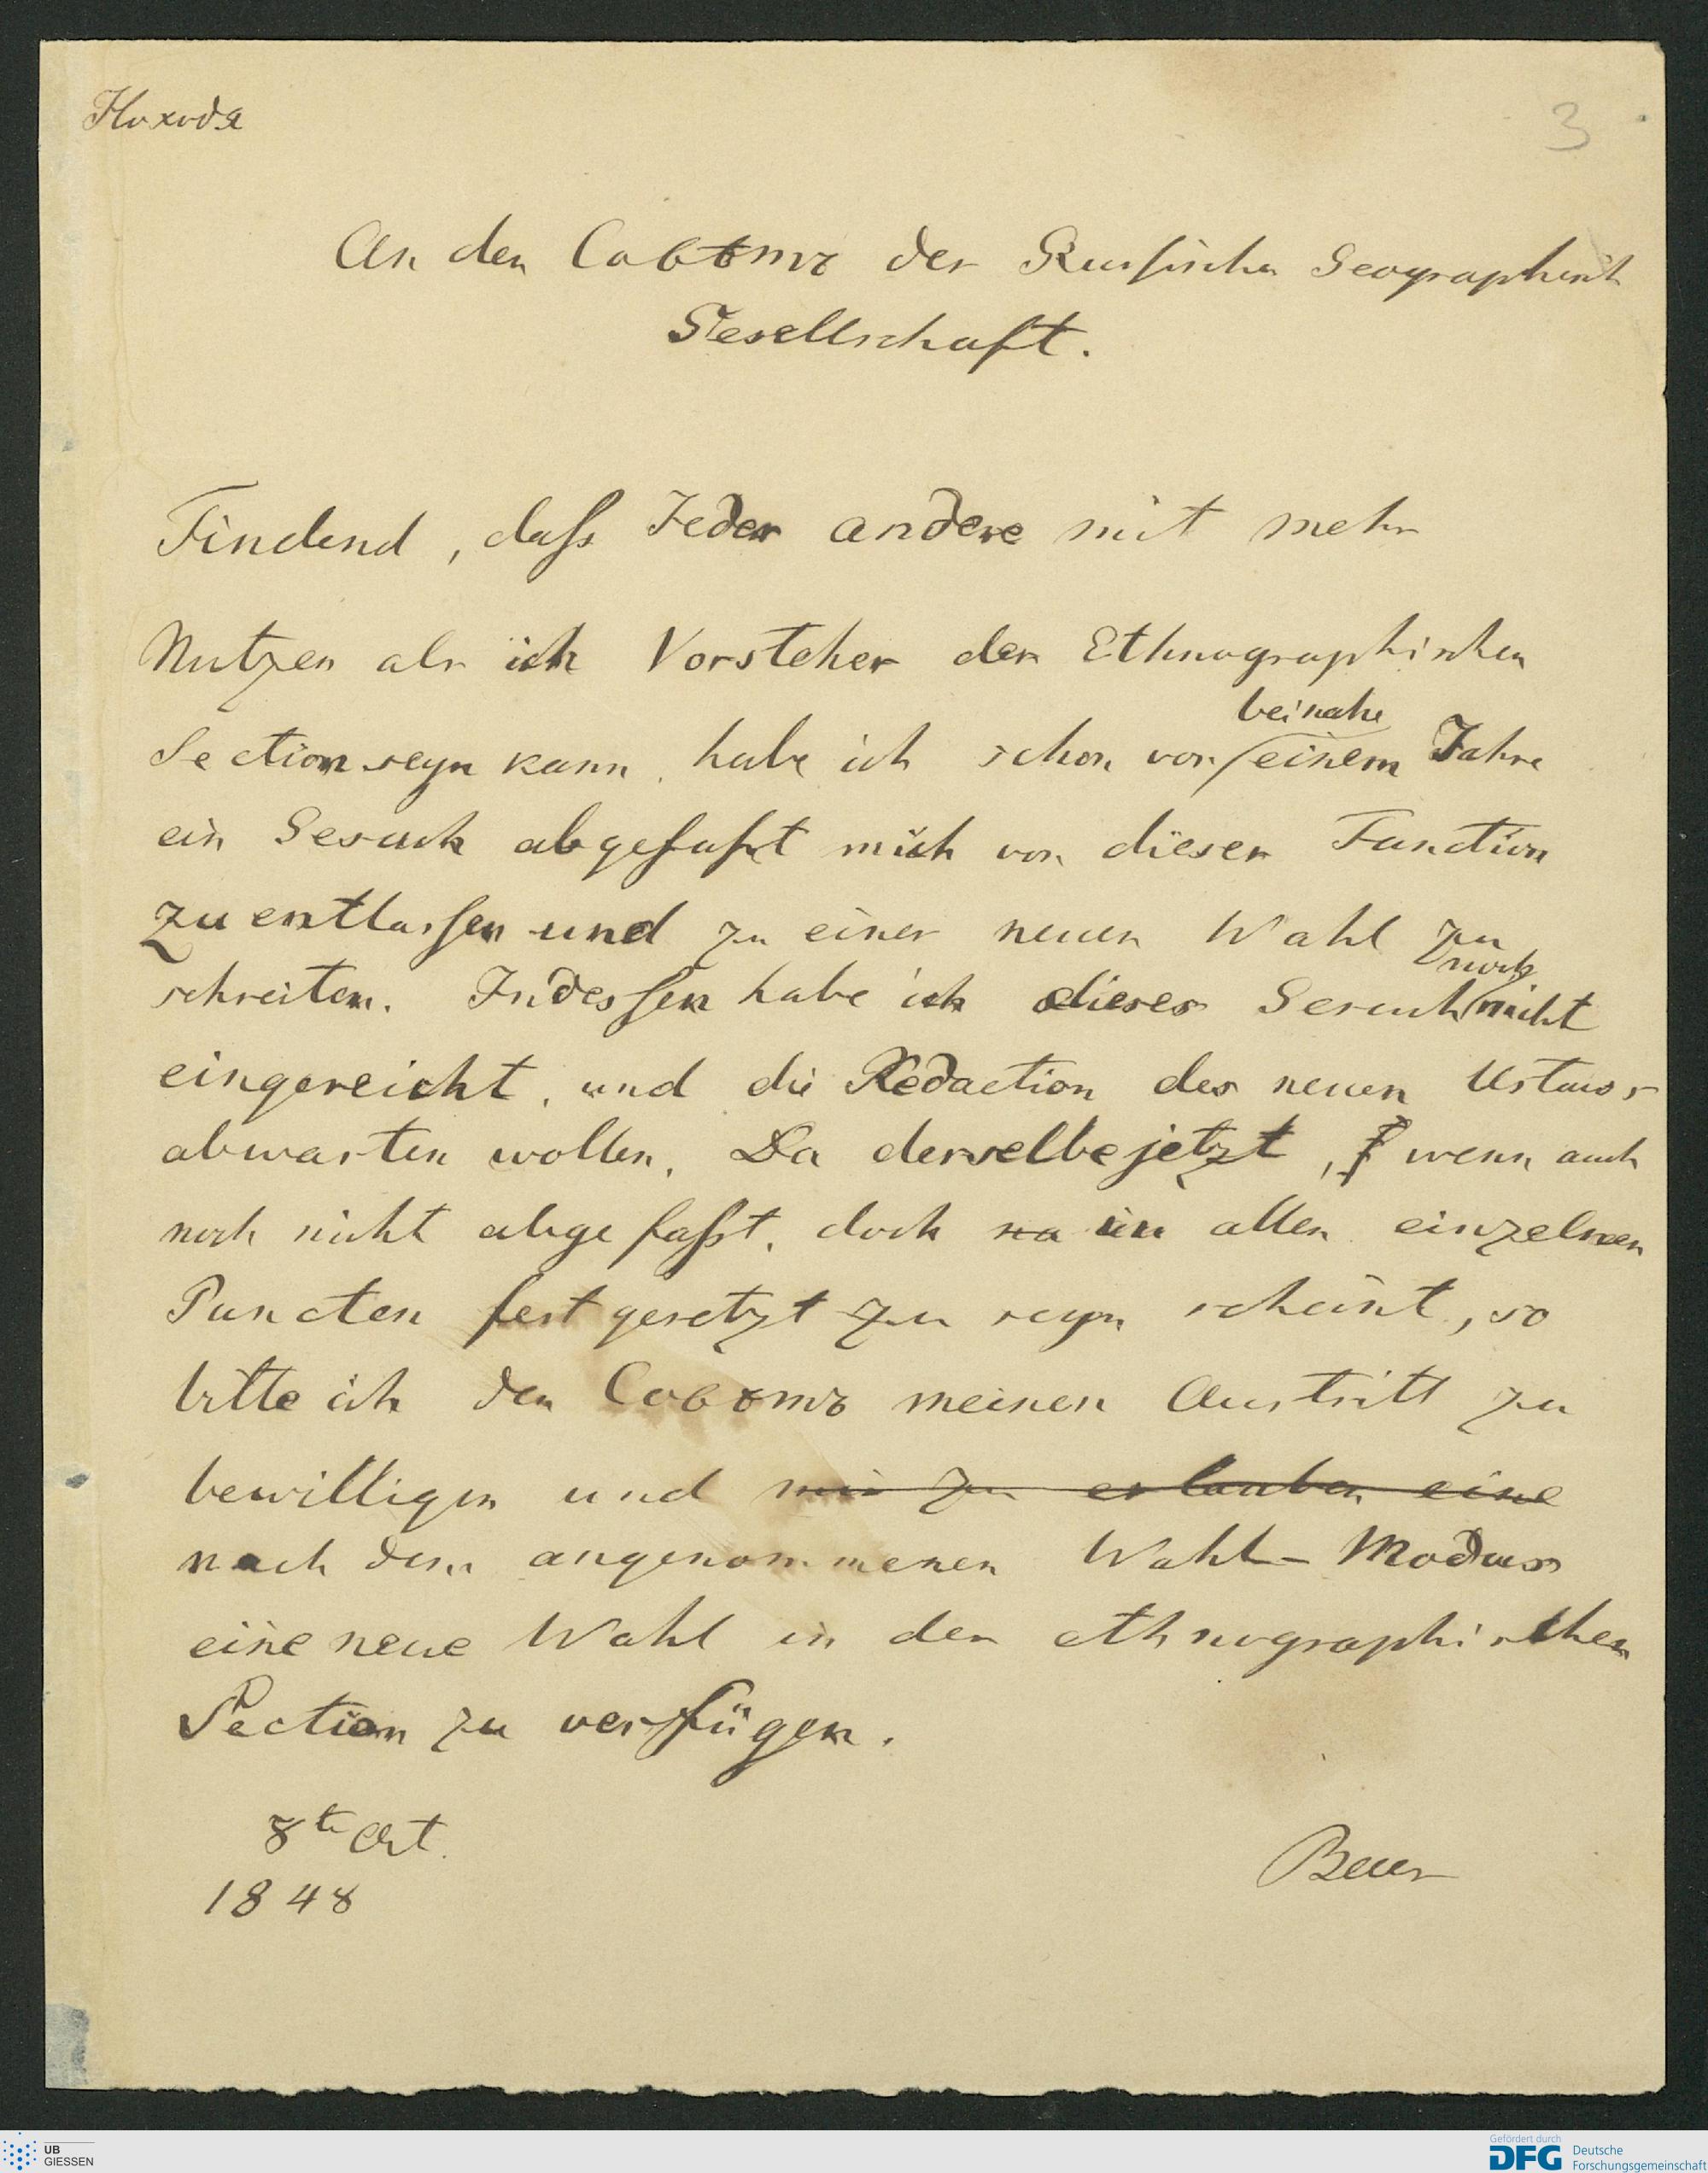 3
An den Совѣтъ der Russischen Geographisch
Gesellschaft.
Findend, daſs Jeder andere mit mehr
Nutzen als ich Vorsteher der Ethnographischen
beinahe
Section seyn kann, habe ich schon vor einem Jahre
ein Gesuch abgefaſst mich von dieser Function
zu entlassen und zu einer neuen Wahl zu
noch
schreiten. Indessen habe ich dieses Gesuch nicht
eingereicht, und die Redaction des neuen Ustaws
abwarten wollen. Da derselbe jetzt, wenn auch
noch nicht abgefaſst, doch na in allen einzelnen
Puncten festgesetzt zu seyn scheint, so
bitte ich den Совѣтъ meinen Austritt zu
bewilligen und mir zu erlauben eine
nach dem angenommenen Wahl-Modus
eine neue Wahl in der ethnographischen
Section zu verfügen.
8te Oct.
1848
Baer
UB
GIESSEN
Gefördert durch
DFG Deutsche
Forschungsgemeinschaft